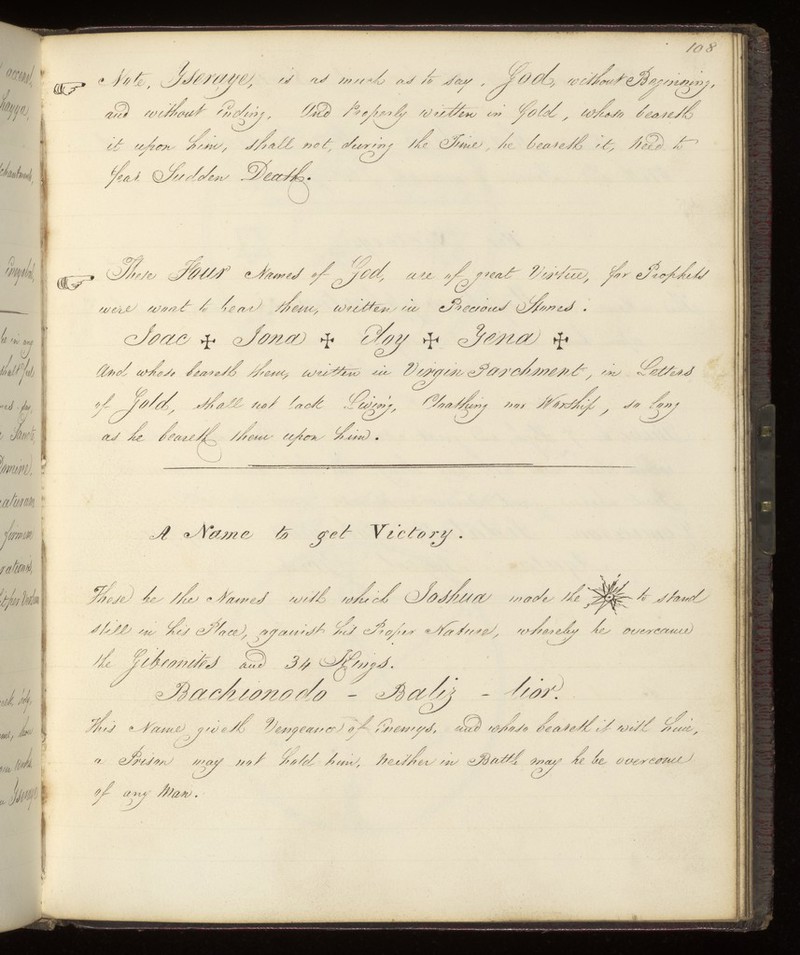 108
Note, Yseraye, is as much as to say, God, without Beginning,
and without Ending. And Properly written in Gold, whoso beareth
it upon him, shall not, during the Time, he beareth it, Need to
fear Sudden Death.
These Four Names of God, are of great Virtue, for Prophets
were wont to bear them, written in Precious Stones.
Joac ✠ Jona ✠ Eloy ✠ Yena ✠
And whoso beareth them, written in Virgin Parchment, in Letters
of Gold, shall not lack Living, Cloathing nor Worship, so long
as he beareth them upon him.
A Name to get Victory.
These be the Names with which Joshua made the ☉ to stand
still in his Place, against his Proper Nature, whereby he overcame
the Gibeonites and 34 Kings.
Bachionodo - Baliz - lior.
This Name giveth Vengeance of Enemys, and whoso beareth it with him,
a Prison may not hold him, Neither in Battle may he be overcome
of any Man.